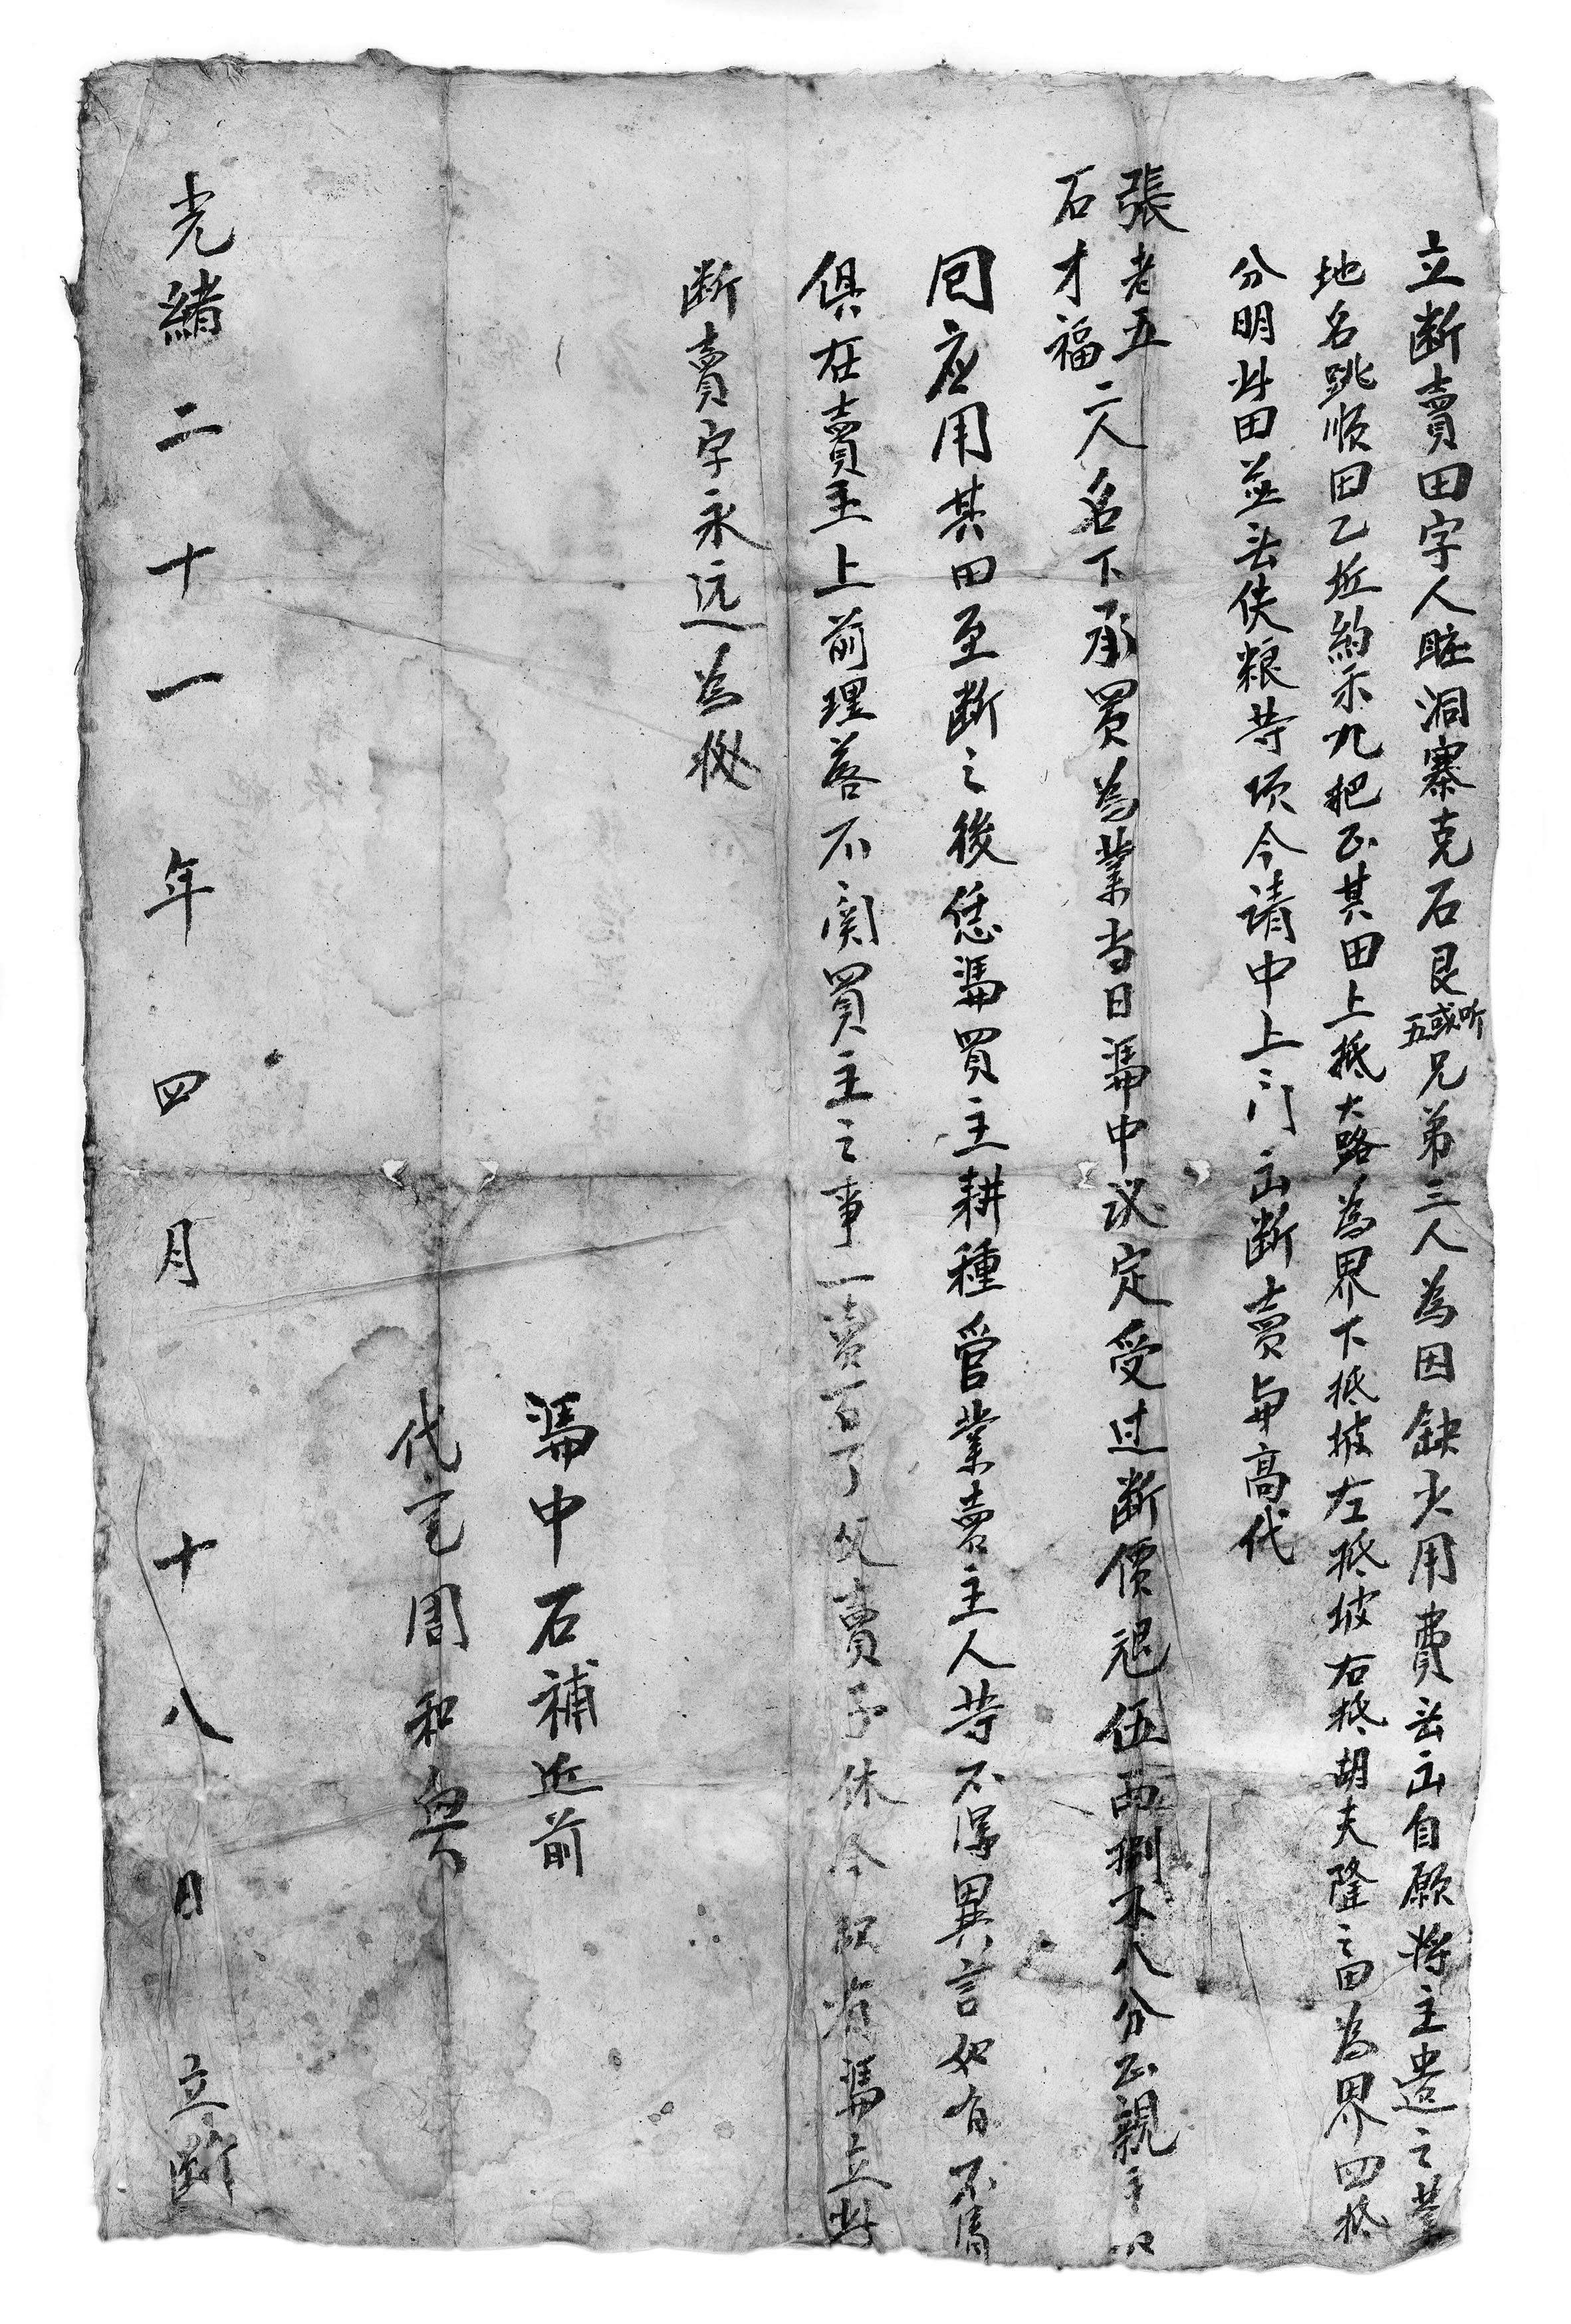 立断賣田字人 洞寨克石艮听或五兄弟三人為因缺少用費岀自願将主遺之業
地名跳順田乙坵約禾九把正其田上抵大路為界下抵坡左抵坡右抵胡夫隆之田為界四抵
分明此田並無 粮等項今请中上门岀断賣與高代
張老五
石才福二人名下承買為業当日憑中议定受过断價 伍両捌 八分正親手
回应用其田至断之後恁憑買主耕種管業賣主人等不得異言如有不
俱在賣主上前理落不関買主之事一賣百了父賣子休今 有憑立此
断賣字永远為
憑中石補近前
代笔周和
光緒二十一年四月十八日立断